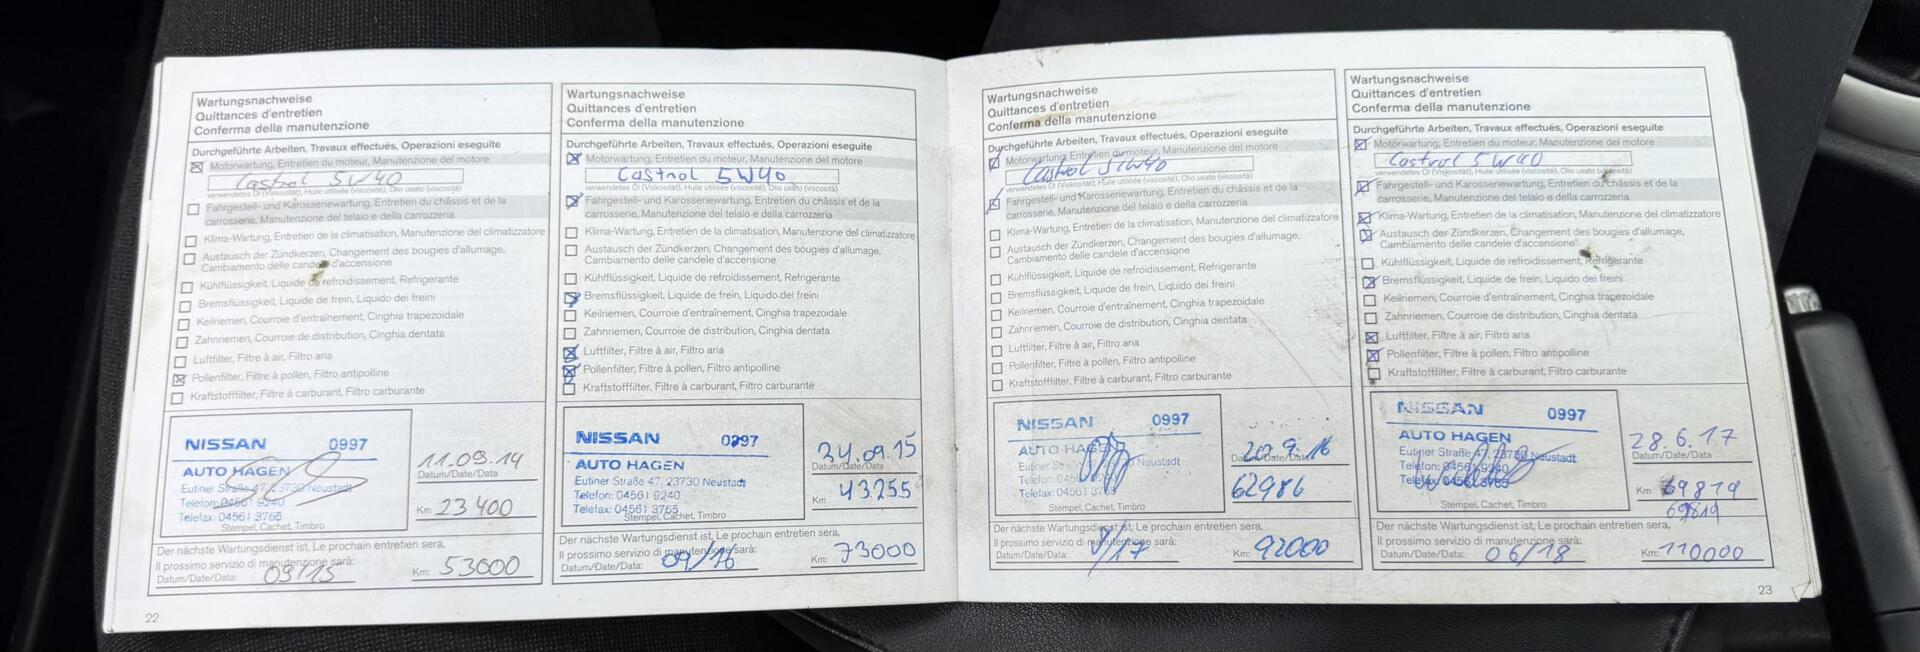 Wartungsnachweise
Quittances d'entretien
Conferma della manutenzione
Durchgeführte Arbeiten, Travaux effectués, Operazioni eseguite
Motorwartung, Entretien du moteur, Manutenzione del motore
Castrol 5W40
verwendetes Öl (Viskosität), Huile utilisée (viscosité), Olio usato (viscosità)
Fahrgestell- und Karosseriewartung, Entretien du châssis et de la
carrosserie, Manutenzione del telaio e della carrozzeria
Klima-Wartung, Entretien de la climatisation, Manutenzione del climatizzatore
Austausch der Zündkerzen, Changement des bougies d'allumage,
Cambiamento delle candele d'accensione
Kühlflüssigkeit, Liquide de refroidissement, Refrigerante
Bremsflüssigkeit, Liquide de frein, Liquido dei freini
Keilriemen, Courroie d'entraînement, Cinghia trapezoidale
Zahnriemen, Courroie de distribution, Cinghia dentata
Luftfilter, Filtre à air, Filtro aria
Pollenfilter, Filtre à pollen, Filtro antipolline
Kraftstofffilter, Filtre à carburant, Filtro carburante
NISSAN 0997
AUTO HAGEN
Eutiner Straße 47, 23730 Neustadt
Telefon: 04561 9240
Telefax: 04561 3765
Stempel, Cachet, Timbro
11.09.14
Datum/Date/Data
Km 23400
Der nächste Wartungsdienst ist, Le prochain entretien sera,
Il prossimo servizio di manutenzione sarà:
Datum/Date/Data: 09/15 Km: 53000
22
Wartungsnachweise
Quittances d'entretien
Conferma della manutenzione
Durchgeführte Arbeiten, Travaux effectués, Operazioni eseguite
Motorwartung, Entretien du moteur, Manutenzione del motore
Castrol 5W40
verwendetes Öl (Viskosität), Huile utilisée (viscosité), Olio usato (viscosità)
Fahrgestell- und Karosseriewartung, Entretien du châssis et de la
carrosserie, Manutenzione del telaio e della carrozzeria
Klima-Wartung, Entretien de la climatisation, Manutenzione del climatizzatore
Austausch der Zündkerzen, Changement des bougies d'allumage,
Cambiamento delle candele d'accensione
Kühlflüssigkeit, Liquide de refroidissement, Refrigerante
Bremsflüssigkeit, Liquide de frein, Liquido dei freini
Keilriemen, Courroie d'entraînement, Cinghia trapezoidale
Zahnriemen, Courroie de distribution, Cinghia dentata
Luftfilter, Filtre à air, Filtro aria
Pollenfilter, Filtre à pollen, Filtro antipolline
Kraftstofffilter, Filtre à carburant, Filtro carburante
NISSAN 0997
AUTO HAGEN
Eutiner Straße 47, 23730 Neustadt
Telefon: 04561 9240
Telefax: 04561 3765
Stempel, Cachet, Timbro
24.09.15
Datum/Date/Data
Km 43255
Der nächste Wartungsdienst ist, Le prochain entretien sera,
Il prossimo servizio di manutenzione sarà:
Datum/Date/Data: 09/16 Km: 73000
Wartungsnachweise
Quittances d'entretien
Conferma della manutenzione
Durchgeführte Arbeiten, Travaux effectués, Operazioni eseguite
Motorwartung, Entretien du moteur, Manutenzione del motore
Castrol 5W40
verwendetes Öl (Viskosität), Huile utilisée (viscosité), Olio usato (viscosità)
Fahrgestell- und Karosseriewartung, Entretien du châssis et de la
carrosserie, Manutenzione del telaio e della carrozzeria
Klima-Wartung, Entretien de la climatisation, Manutenzione del climatizzatore
Austausch der Zündkerzen, Changement des bougies d'allumage,
Cambiamento delle candele d'accensione
Kühlflüssigkeit, Liquide de refroidissement, Refrigerante
Bremsflüssigkeit, Liquide de frein, Liquido dei freini
Keilriemen, Courroie d'entraînement, Cinghia trapezoidale
Zahnriemen, Courroie de distribution, Cinghia dentata
Luftfilter, Filtre à air, Filtro aria
Pollenfilter, Filtre à pollen, Filtro antipolline
Kraftstofffilter, Filtre à carburant, Filtro carburante
NISSAN 0997
AUTO HAGEN
Eutiner Straße Neustadt
Telefon: 04561
Telefax: 04561 3765
Stempel, Cachet, Timbro
20.9.16
Datum/Date/Data
Km 62986
Der nächste Wartungsdienst ist, Le prochain entretien sera,
Il prossimo servizio di manutenzione sarà:
Datum/Date/Data: 9/17 Km: 92000
Wartungsnachweise
Quittances d'entretien
Conferma della manutenzione
Durchgeführte Arbeiten, Travaux effectués, Operazioni eseguite
Motorwartung, Entretien du moteur, Manutenzione del motore
Castrol 5W40
verwendetes Öl (Viskosität), Huile utilisée (viscosité), Olio usato (viscosità)
Fahrgestell- und Karosseriewartung, Entretien du châssis et de la
carrosserie, Manutenzione del telaio e della carrozzeria
Klima-Wartung, Entretien de la climatisation, Manutenzione del climatizzatore
Austausch der Zündkerzen, Changement des bougies d'allumage,
Cambiamento delle candele d'accensione
Kühlflüssigkeit, Liquide de refroidissement, Refrigerante
Bremsflüssigkeit, Liquide de frein, Liquido dei freini
Keilriemen, Courroie d'entraînement, Cinghia trapezoidale
Zahnriemen, Courroie de distribution, Cinghia dentata
Luftfilter, Filtre à air, Filtro aria
Pollenfilter, Filtre à pollen, Filtro antipolline
Kraftstofffilter, Filtre à carburant, Filtro carburante
NISSAN 0997
AUTO HAGEN
Eutiner Straße 47, 23730 Neustadt
Telefon: 04561 9240
Telefax: 04561 3765
Stempel, Cachet, Timbro
28.6.17
Datum/Date/Data
Km 69819
69819
Der nächste Wartungsdienst ist, Le prochain entretien sera,
Il prossimo servizio di manutenzione sarà:
Datum/Date/Data: 06/18 Km: 110000
23